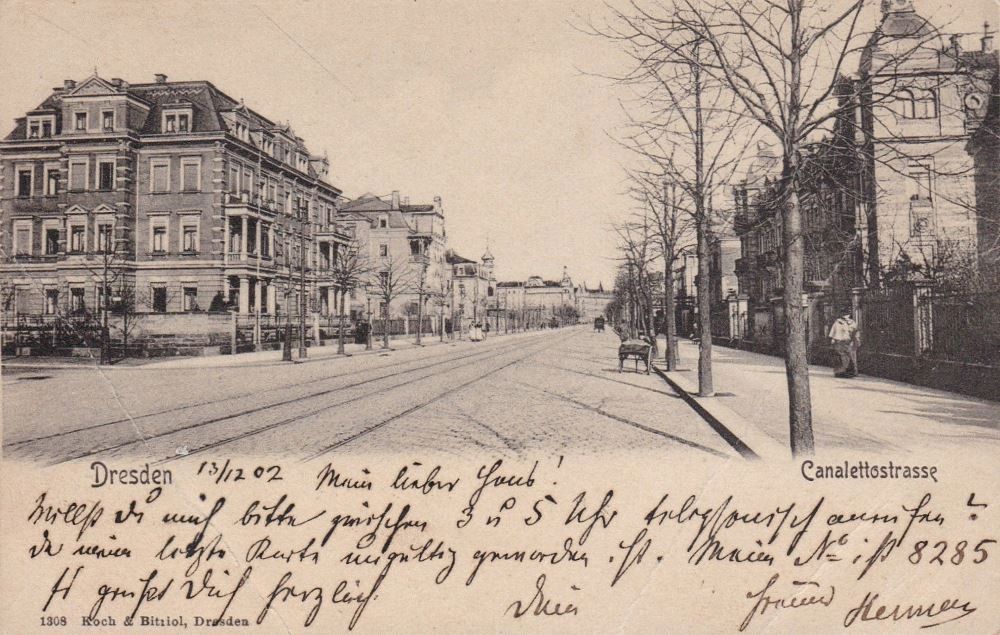 Dresden 13/12 02 Mein lieber Hans! Canalettostrasse
Willst du mich bitte zwischen 3 u 5 Uhr telephonisch anrufen?
da meine letzte Karte ungültig geworden ist. Meine No ist 8285
Es grüßt Dich herzlich. Dein Hermann
1308 Koch & Bitriol, Dresden